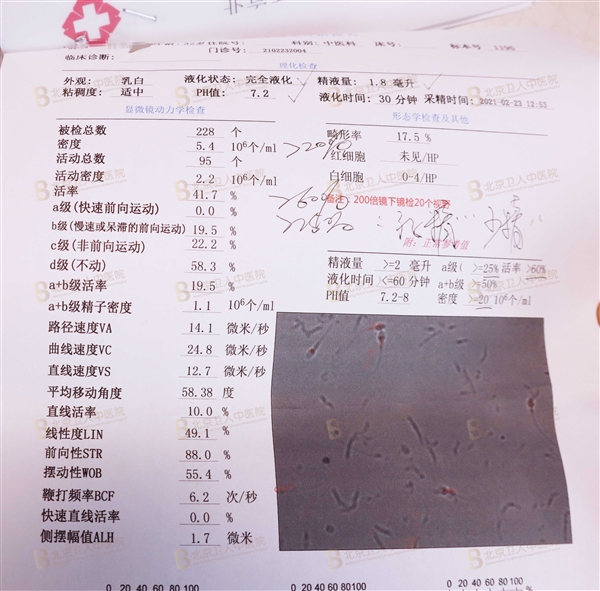 科别: 中医科 床号: 标本号 1196
门诊号: 2102232004
临床诊断:
理化检查
外观: 乳白 液化状态: 完全液化 精液量: 1.8 毫升
粘稠度: 适中 PH值: 7.2 液化时间: 30 分钟 采精时间: 2021-02-23 12:53
显微镜动力学检查
被检总数 228 个
密度 5.4 10⁶个/ml >20%
活动总数 95 个
活动密度 2.2 10⁶个/ml
活率 41.7 % >60%
a级(快速前向运动) 0.0 % >25%
b级(慢速或呆滞的前向运动) 19.5 %
c级(非前向运动) 22.2 %
d级(不动) 58.3 %
a+b级活率 19.5 %
a+b级精子密度 1.1 10⁶个/ml
路径速度VA 14.1 微米/秒
曲线速度VC 24.8 微米/秒
直线速度VS 12.7 微米/秒
平均移动角度 58.38 度
直线活率 10.0 %
线性度LIN 49.1 %
前向性STR 88.0 %
摆动性WOB 55.4 %
鞭打频率BCF 6.2 次/秒
快速直线活率 0.0 %
侧摆幅值ALH 1.7 微米
形态学检查及其他
畸形率 17.5 %
红细胞 未见/HP
白细胞 0-4/HP
备注: 200倍镜下镜检20个视野
附: 正常参考值
精液量 >=2 毫升 a级( >=25% 活率 >60%
液化时间 <=60 分钟 a+b级 >=50%
PH值 7.2-8 密度 >=20 10⁶个/ml
0 20 40 60 80 100
0 20 40 60 80 100
0 20 40 60 80 100
北京卫人中医院